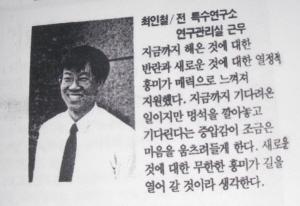 최인철/전 특수연구소
연구관리실 근무
지금까지 해온 것에 대한
반란과 새로운 것에 대한 열정적
흥미가 매력으로 느껴져
지원했다. 지금까지 기다려온
일이지만 멍석을 깔아놓고
기다린다는 중압감이 조금은
마음을 움츠려들게 한다. 새로운
것에 대한 무한한 흥미가 길을
열어 갈 것이라 생각한다.